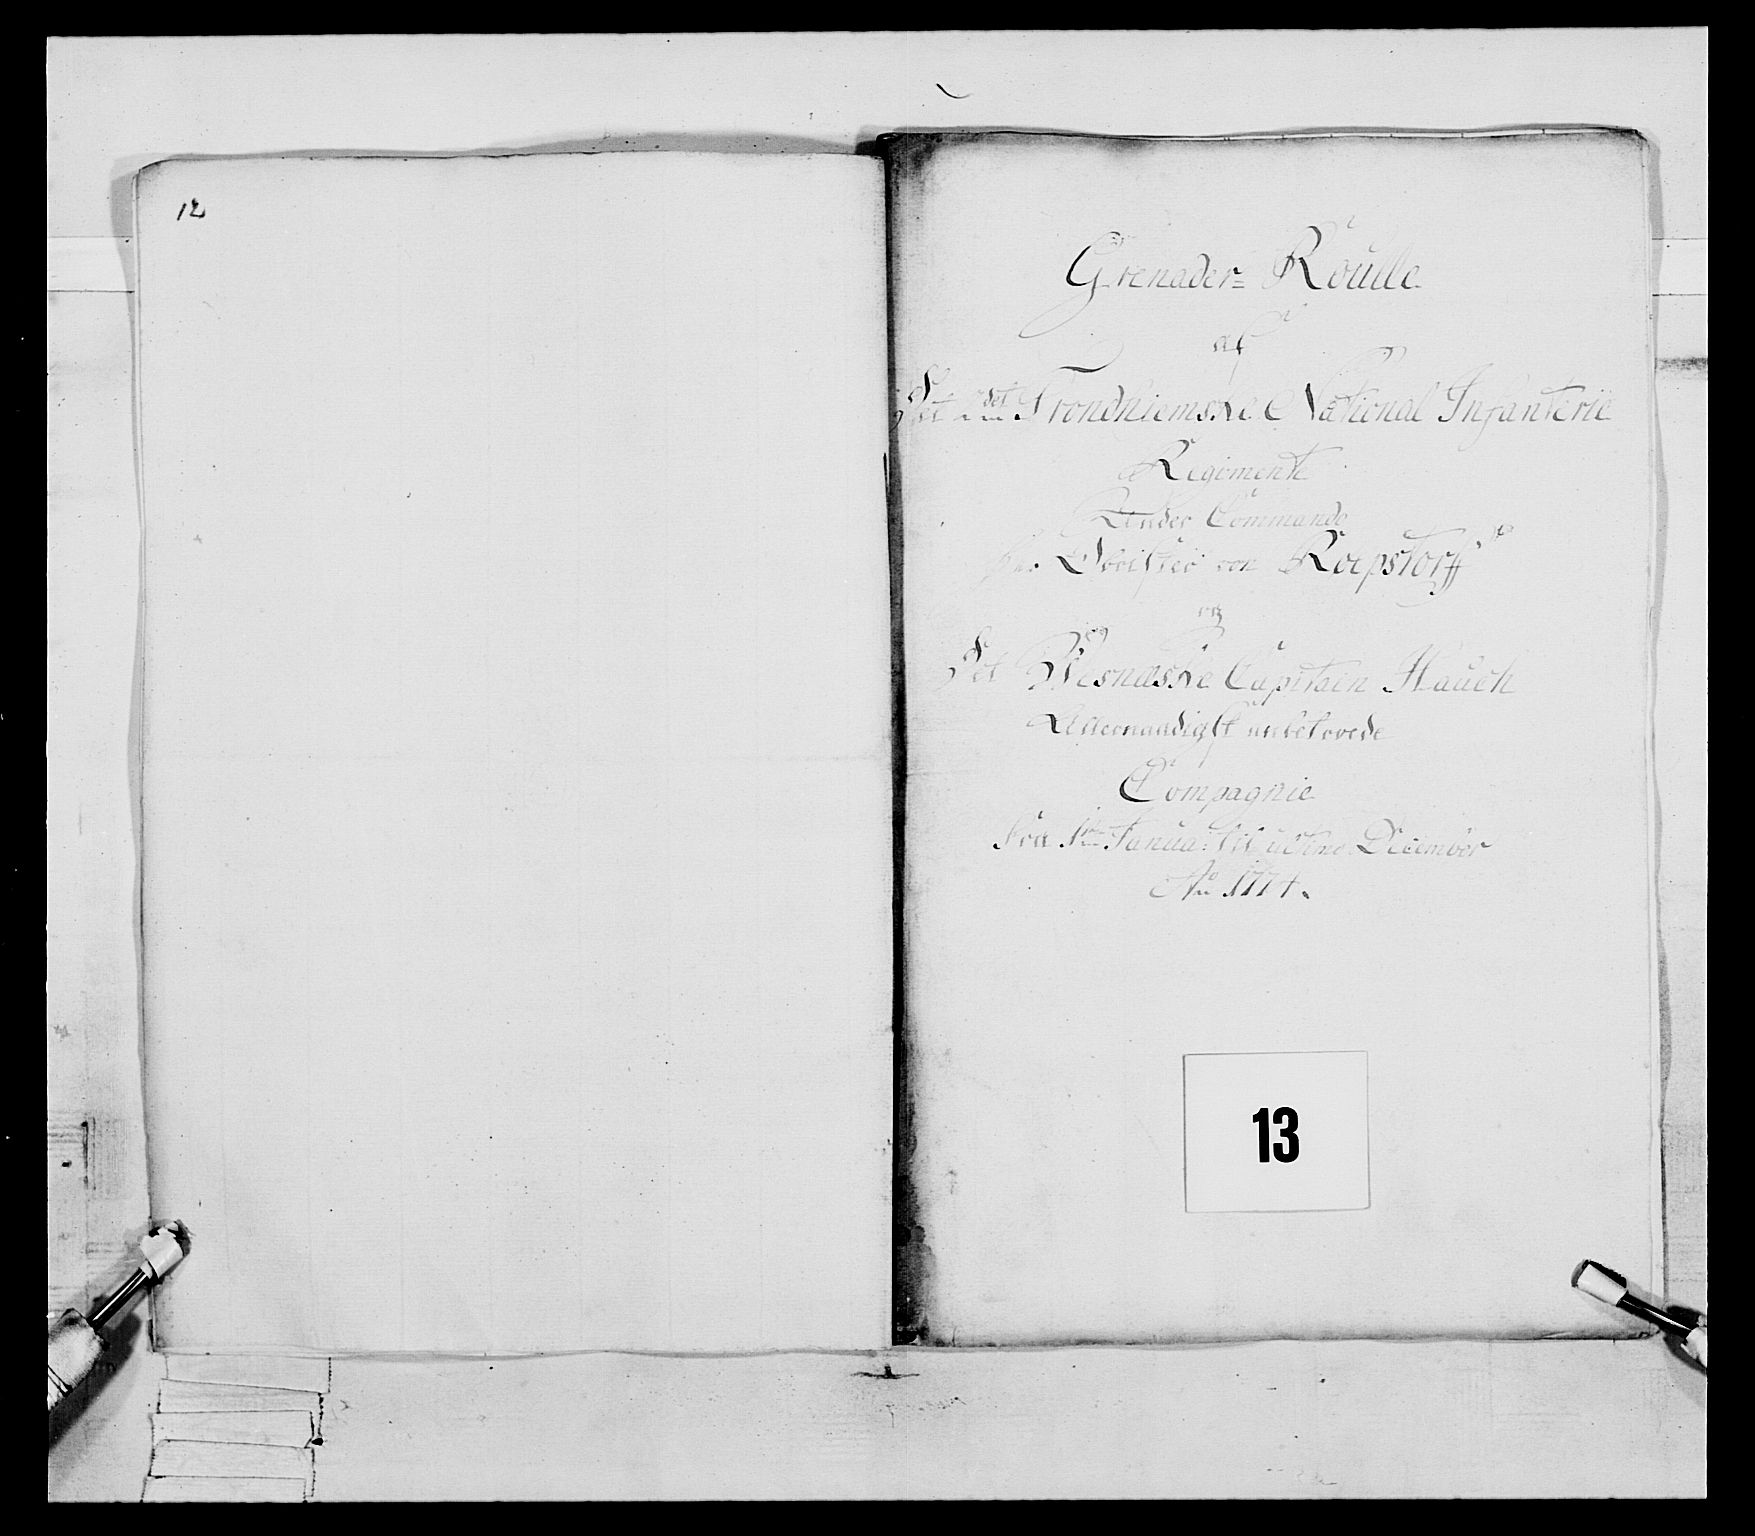 12
Grenader= Roulle
af
Det 2det Trondhiemske National Infanterie
Regimente
Under Commando
Hr. Obrister von Roepstorff
og
Det Wesnæske Capitain Hauch
Allernaadigst anbetroede
Compagnie
Fra 1ste Janua: til ultimo December
Ao 1774.
13